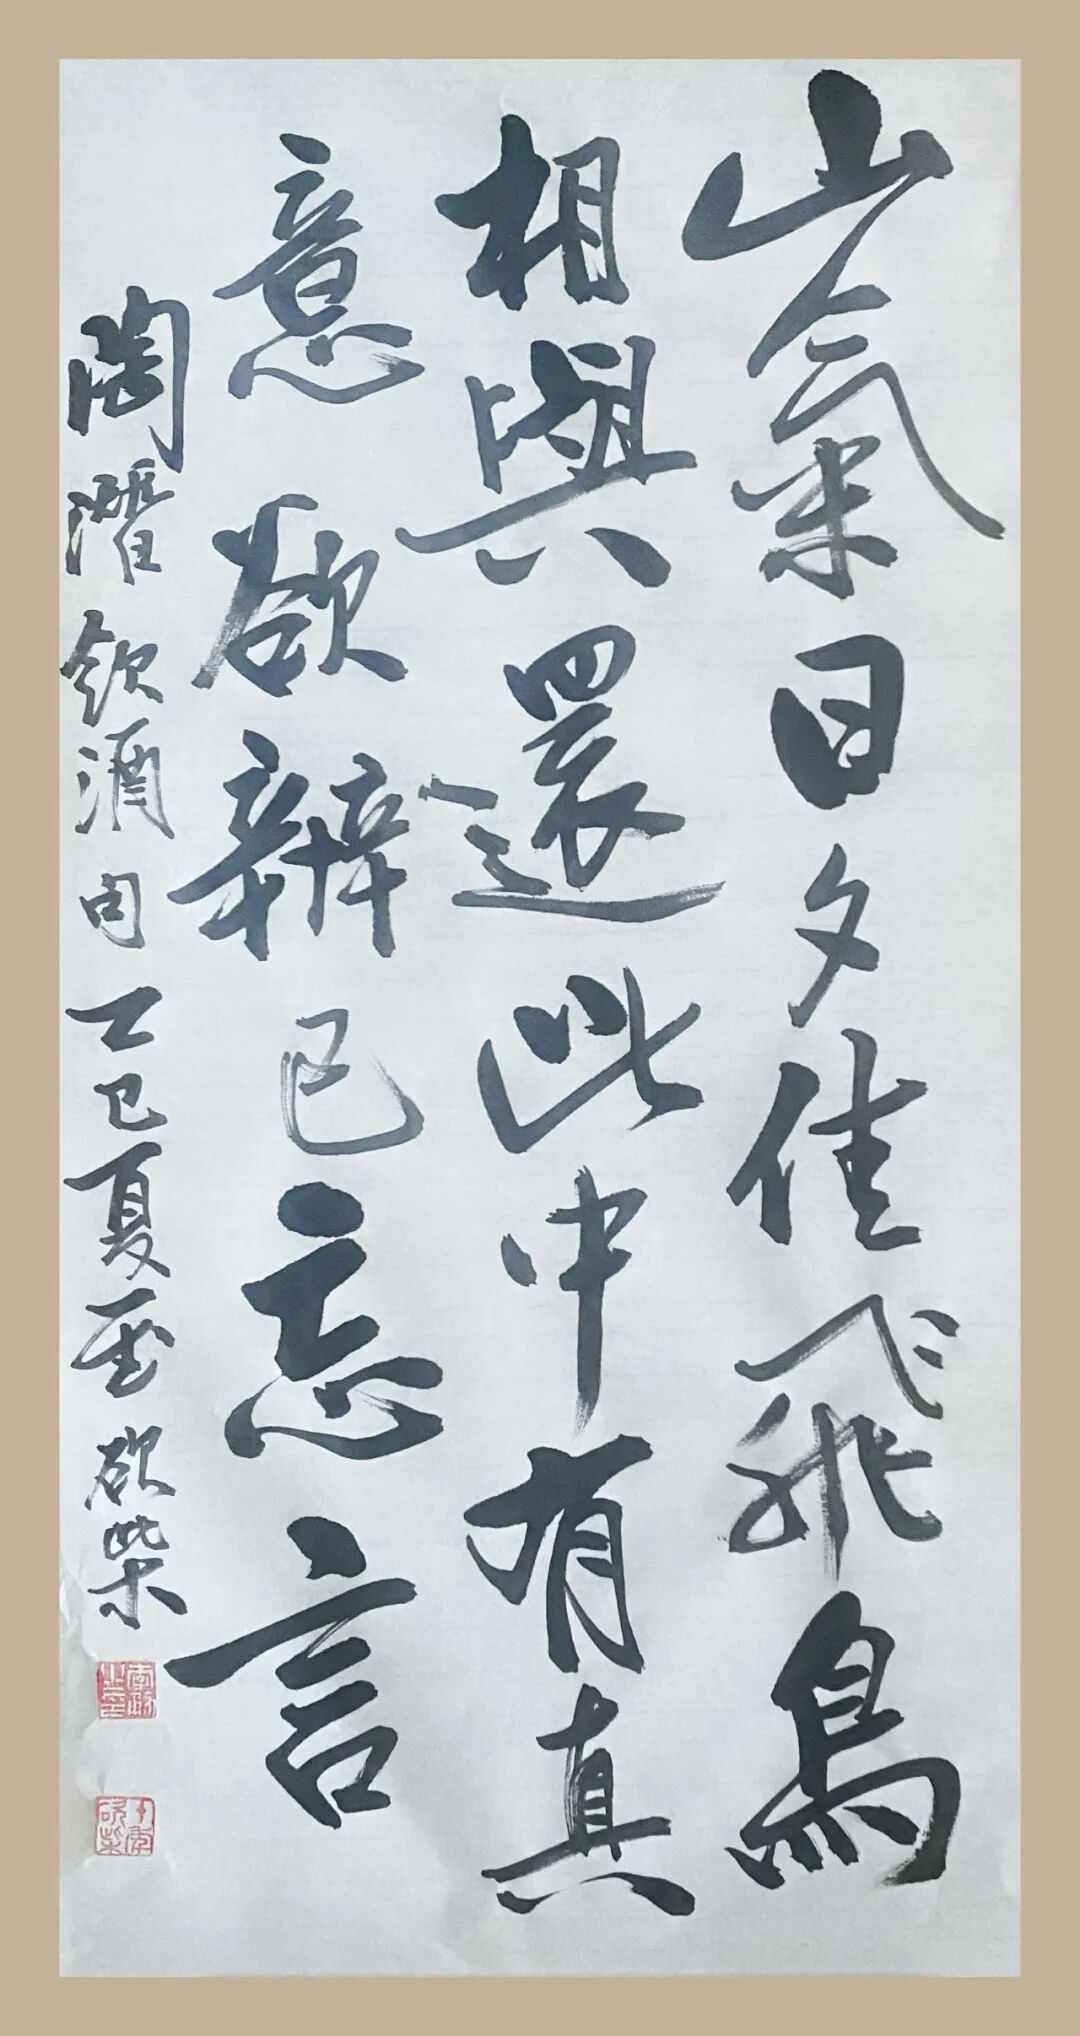 山氣日夕佳飛鳥
相與還此中有真
意欲辨已忘言
陶潛飲酒句乙巳夏至砍柴